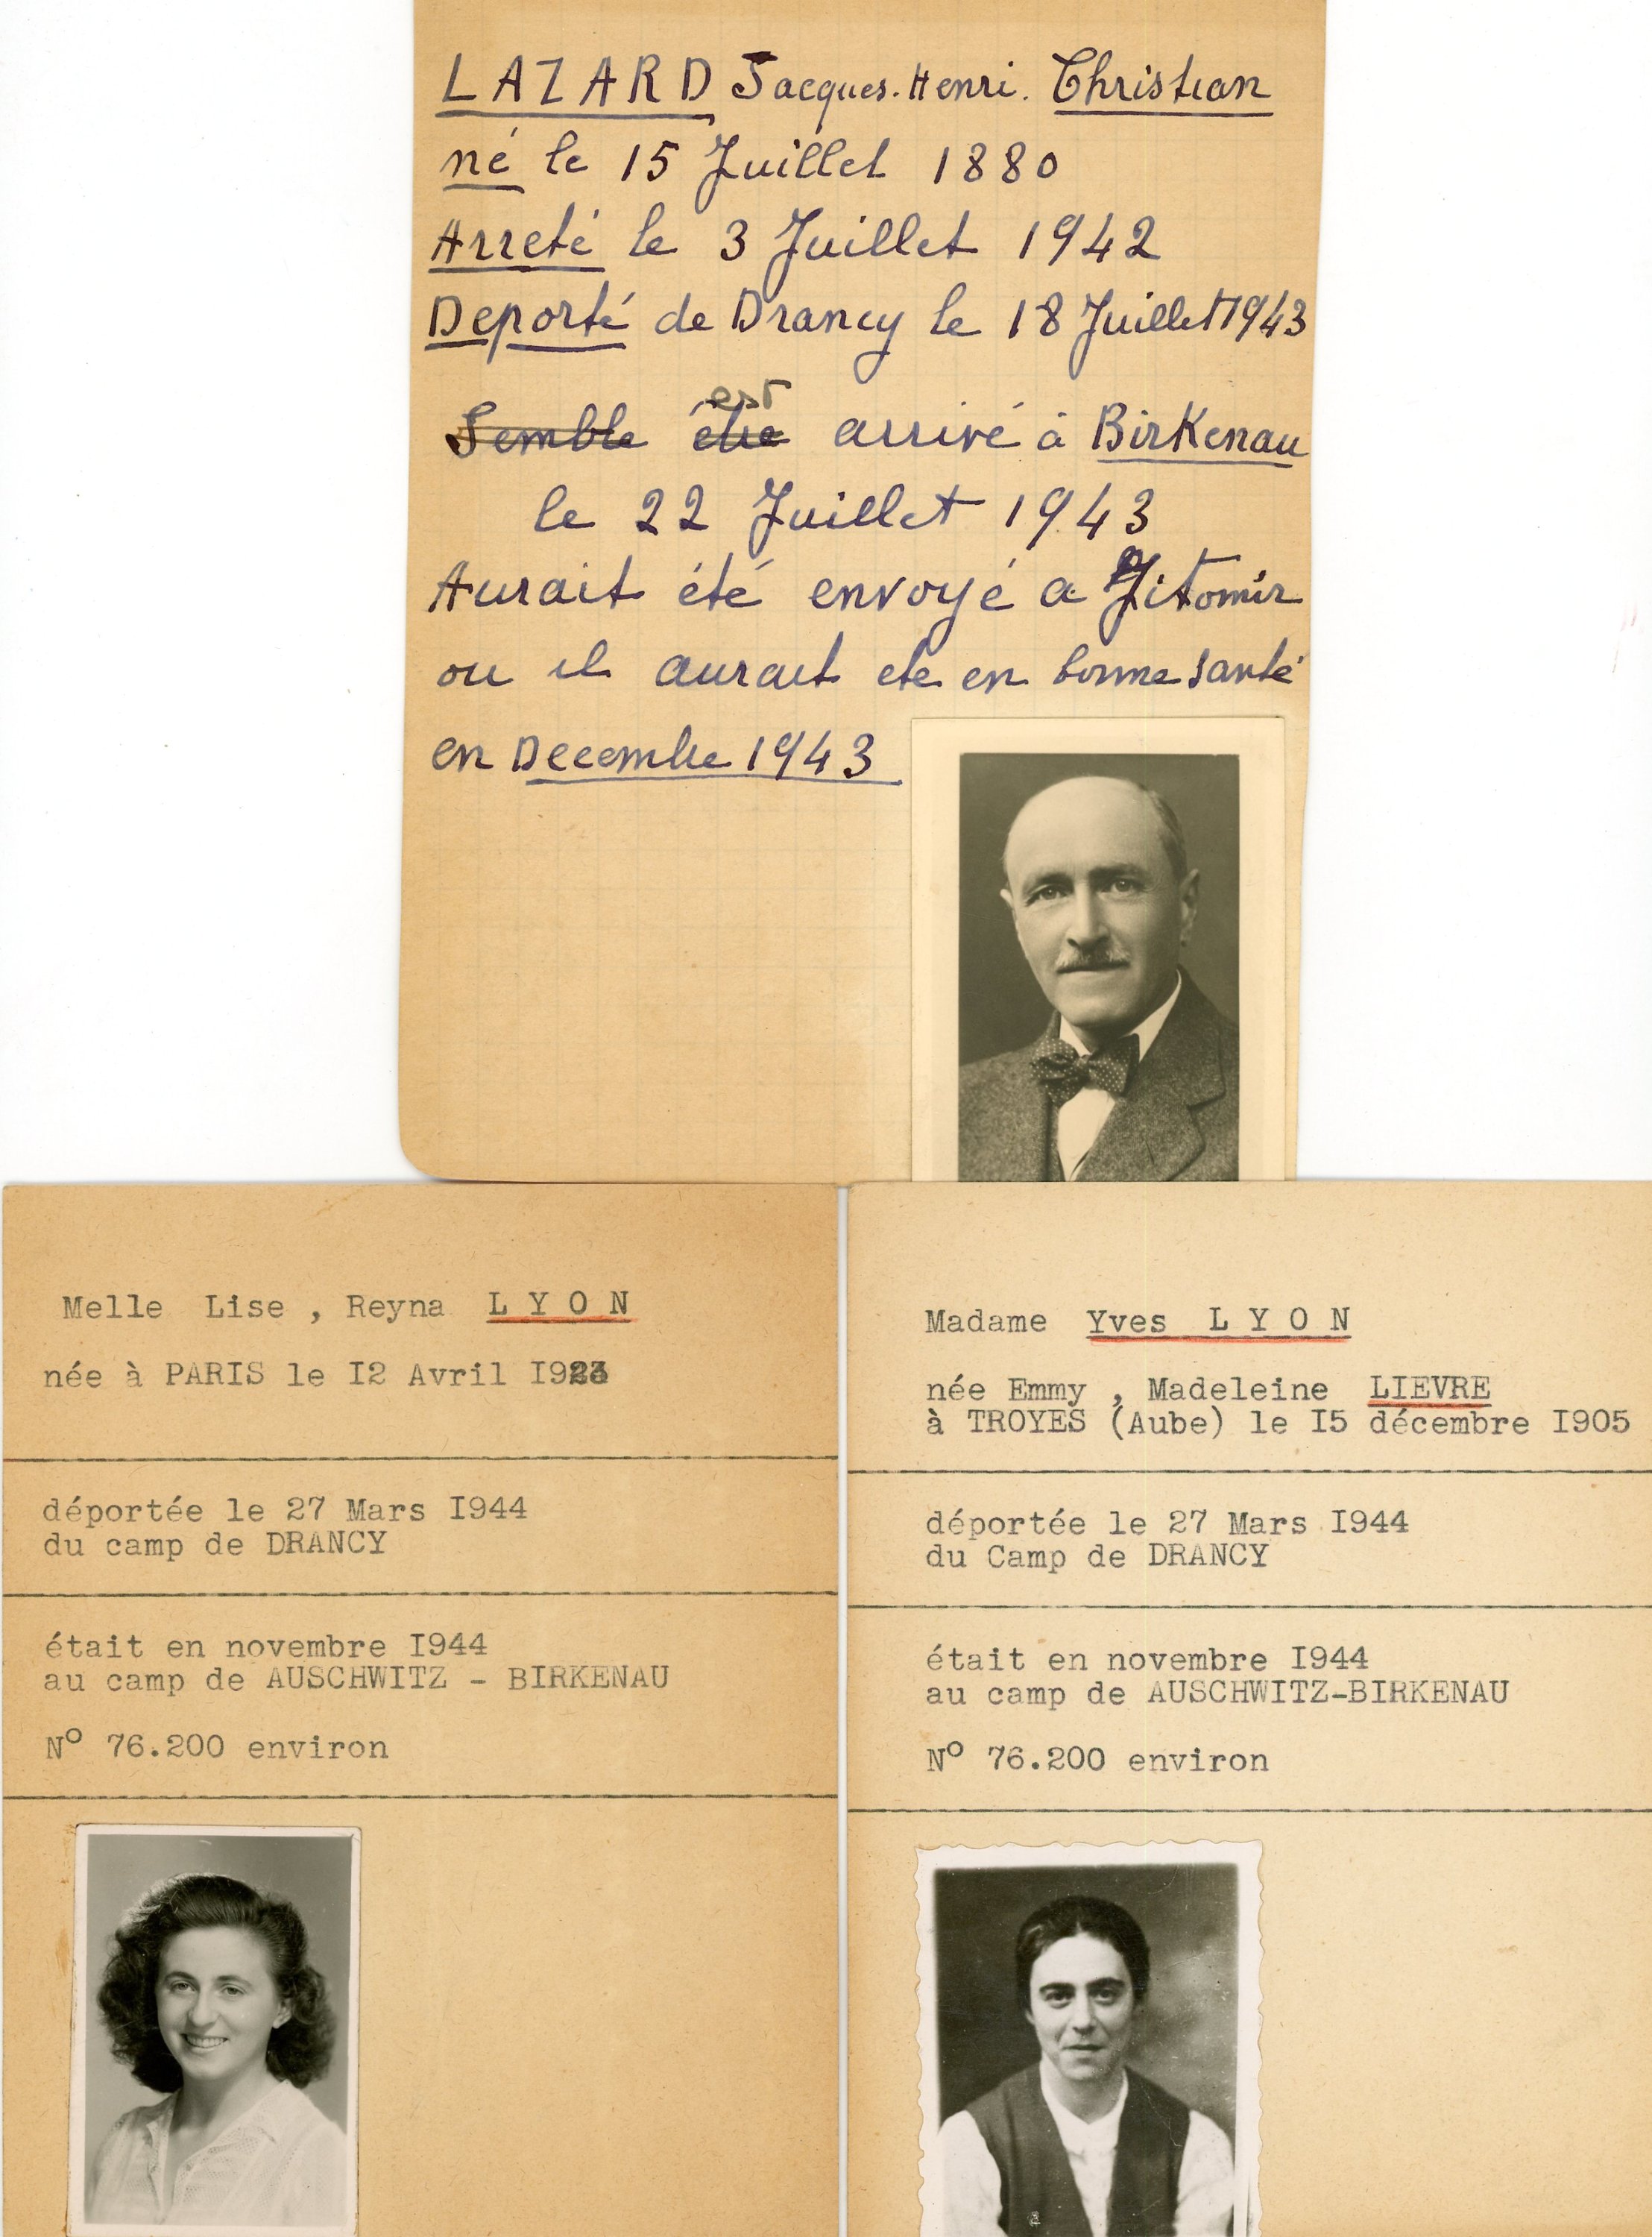 LAZARD Jacques. Henri. Christian
né le 15 Juillet 1880
Arreté le 3 Juillet 1942
Deporté de Drancy le 18 Juillet 1943
est
Semble être arrivé à Birkenau
le 22 Juillet 1943
Aurait été envoyé a Jitomir
ou il aurait ete en bonne santé
en Decembre 1943
Melle Lise , Reyna L Y O N
née à PARIS le I2 Avril
déportée le 27 Mars I944
du camp de DRANCY
était en novembre I944
au camp de AUSCHWITZ - BIRKENAU
N° 76.200 environ
Madame Yves L Y O N
née Emmy , Madeleine LIEVRE
à TROYES (Aube) le I5 décembre I905
déportée le 27 Mars I944
du Camp de DRANCY
était en novembre I944
au camp de AUSCHWITZ-BIRKENAU
N° 76.200 environ